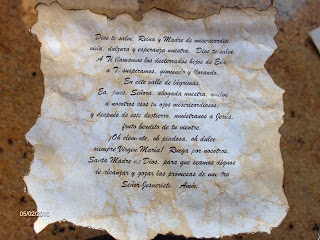 Dios te salve, Reina y Madre de misericordia,
vida, dulzura y esperanza nuestra. Dios te salve.
A Ti llamamos los desterrados hijos de Eva,
a Ti suspiramos, gimiendo y llorando,
En este valle de lágrimas.
Ea, pues, Señora, abogada nuestra, vuelve
a nosotros esos tu ojos misericordiosos,
y después de este destierro, muéstranos a Jesús,
fruto bendito de tu vientre.
¡Oh clemente, oh piadosa, oh dulce
siempre Virgen María! Ruega por nosotros,
Santa Madre de Dios, para que seamos dignos
de alcanzar y gozar las promesas de nuestro
Señor Jesucristo. Amén.
05/02/2010